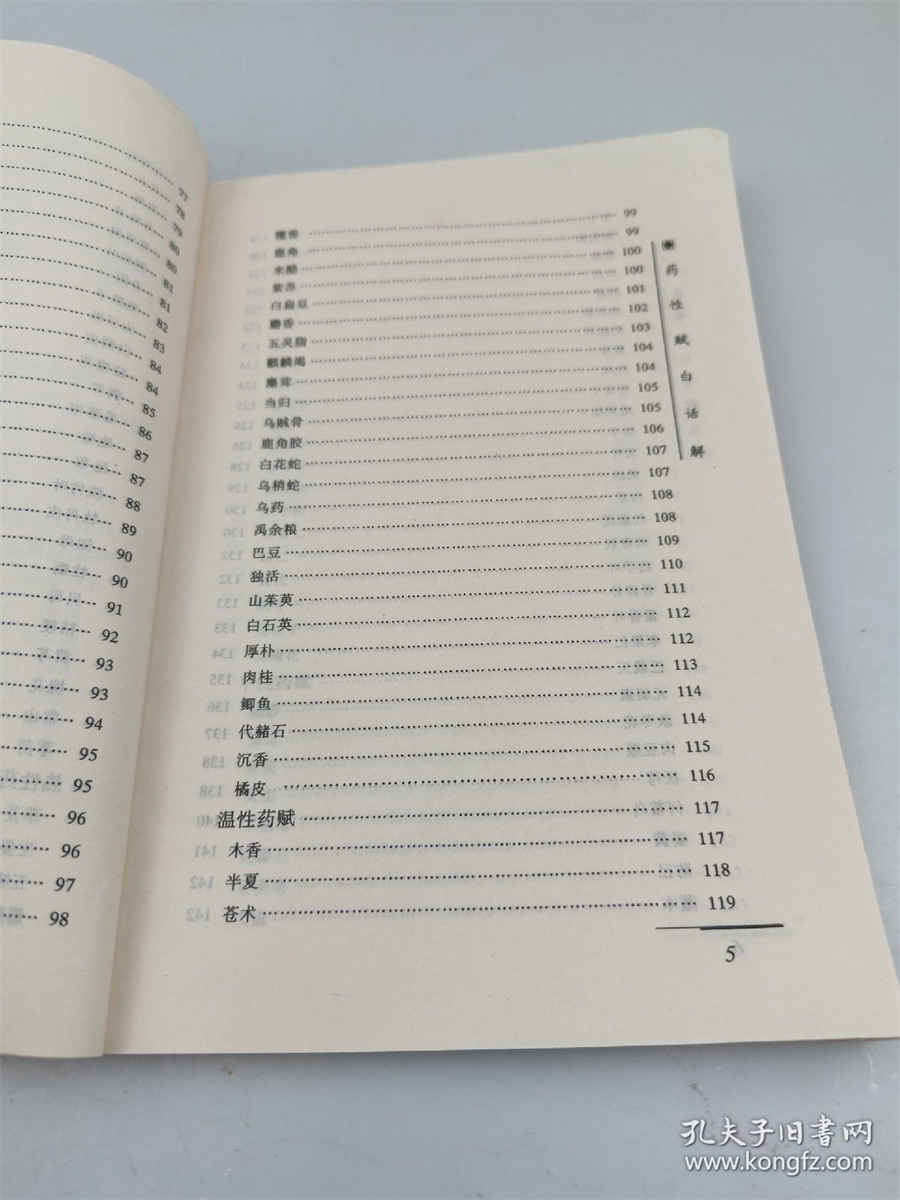 77
78
79
80
80
81
81
82
83
84
84
85
86
87
87
88
89
90
90
91
92
93
93
94
95
95
96
96
97
98
檀香 …… 99
鹿角 …… 99
米醋 …… 100
紫苏 …… 100
白扁豆 …… 101
麝香 …… 102
五灵脂 …… 103
麒麟竭 …… 104
麋茸 …… 104
当归 …… 105
乌贼骨 …… 105
鹿角胶 …… 106
白花蛇 …… 107
乌梢蛇 …… 107
乌药 …… 108
禹余粮 …… 108
巴豆 …… 109
独活 …… 110
山茱萸 …… 111
白石英 …… 112
厚朴 …… 112
肉桂 …… 113
鲫鱼 …… 114
代赭石 …… 114
沉香 …… 115
橘皮 …… 116
温性药赋 …… 117
木香 …… 117
半夏 …… 118
苍术 …… 119
药性赋白话解
5
孔夫子旧書网
www.kongfz.com